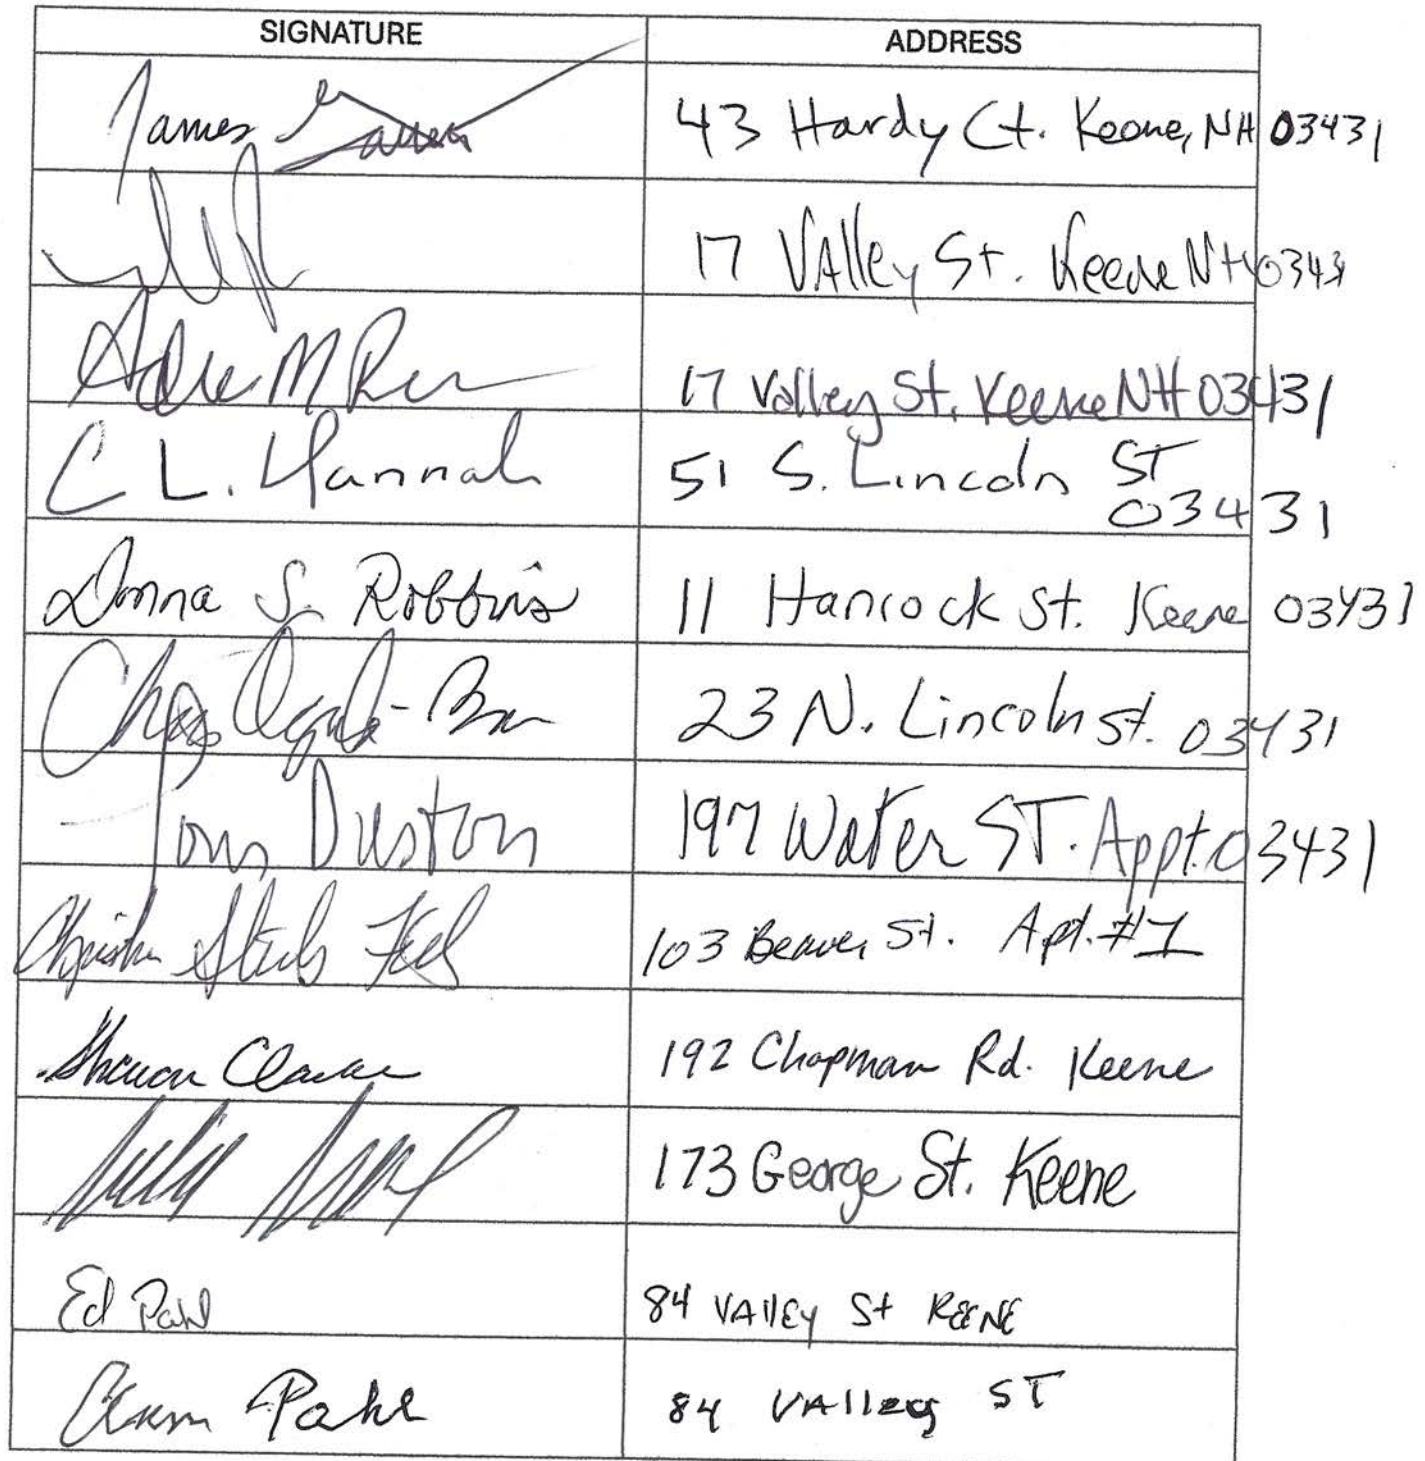 SIGNATURE ADDRESS
James 43 Hardy Ct. Keene, NH 03431
17 VAlley St. Keene NH 03431
M 17 Valley St. Keene NH 03431
C L. Hannah 51 S. Lincoln ST
03431
Donna S. Robbins 11 Hancock St. Keene 03431
23 N. Lincoln St. 03431
Tom Duston 197 Water ST. Appt. 03431
103 Beaver St. Apt. #1
Sharon 192 Chapman Rd. Keene
173 George St. Keene
Ed Pahl 84 VAllEy St KEENE
Pahl 84 VAlley ST